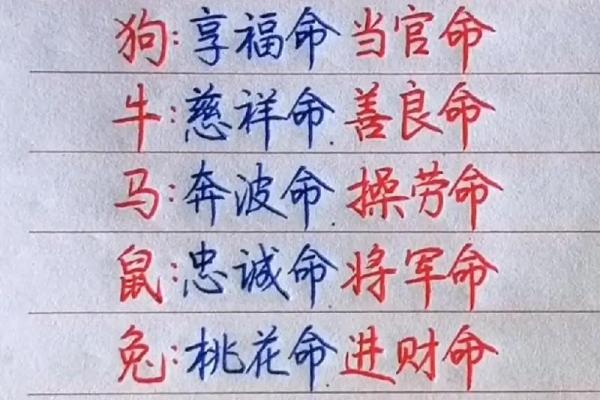 狗:享福命 当官命
牛:慈祥命.善良命
马:奔波命.操劳命
鼠:忠诚命.将军命
兔:桃花命.进财命